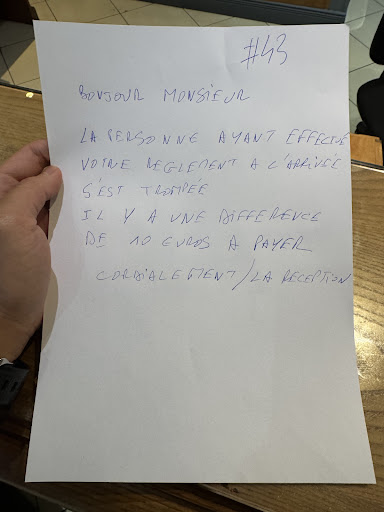 #43
BONJOUR MONSIEUR
LA PERSONNE AYANT EFFECTUÉ
VOTRE REGLEMENT A L'ARRIVÉE
S'EST TROMPÉE
IL Y A UNE DIFFERENCE
DE 10 EUROS A PAYER
CORDIALEMENT/LA RECEPTION